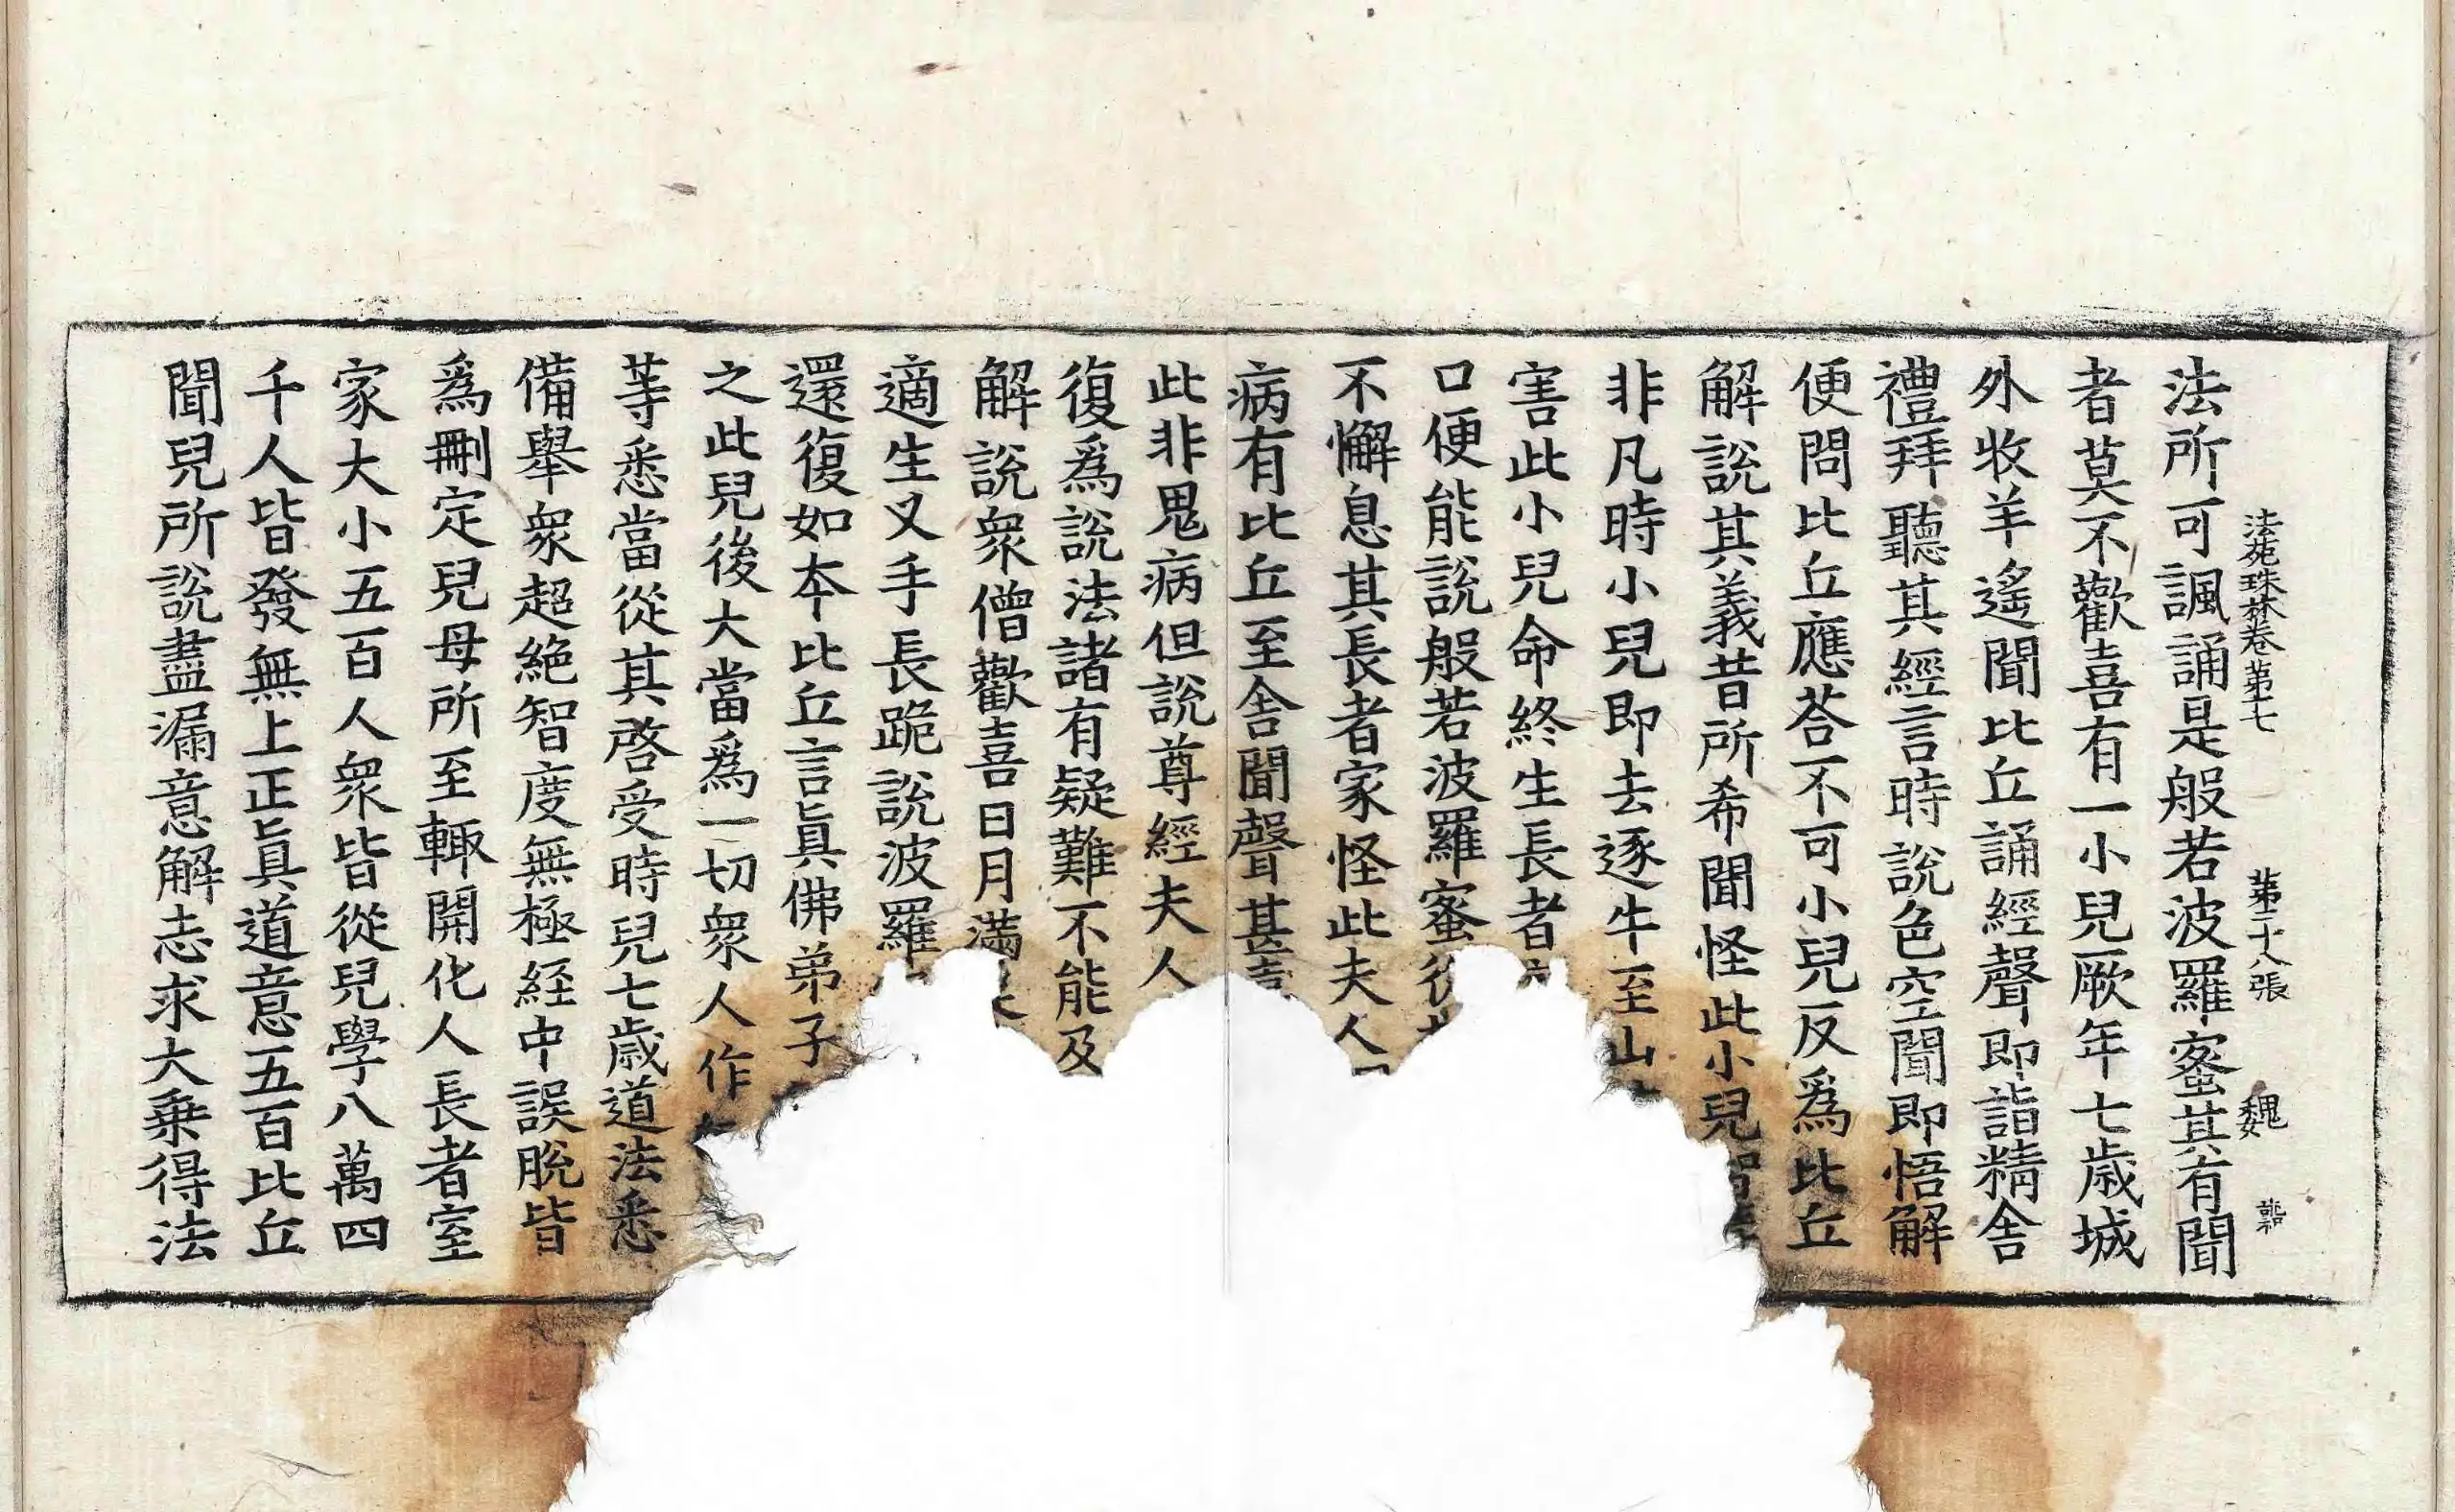 法苑珠林卷第十七 第二十八張 魏
法所可諷誦是般若波羅蜜其有聞
者莫不歡喜有一小兒厥年七歲城
外收羊遙聞比丘誦經聲即詣精舍
禮拜聽其經言時說色空聞即悟解
便問比丘應荅不可小兒反爲比丘
解說其義昔所希聞怪此小兒
非凡時小兒即去逐牛至山
害此小兒命終生長者
口便能說般若波羅蜜
不懈息其長者家怪此夫人
病有比丘至舍聞聲甚
此非鬼病但說尊經夫人
復爲說法諸有疑難不能及
解說衆僧歡喜日月滿
適生叉手長跪說波羅
還復如本比丘言眞佛弟子
之此兒後大當爲一切衆人作
等悉當從其啓受時兒七歲道法悉
備舉衆超絕智度無極経中誤脫皆
爲刪定兒母所至輙開化人長者室
家大小五百人衆皆從兒學八萬四
千人皆發無上正眞道意五百比丘
聞兒所說盡漏意解志求大乗得法